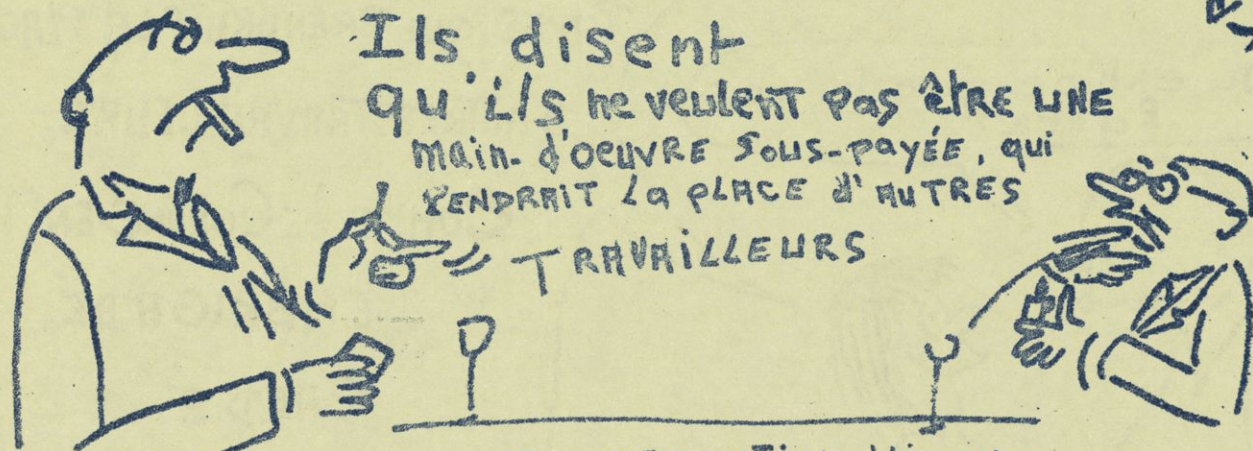 Ils disent
qu'ils ne veulent pas être une
main-d'oeuvre sous-payée, qui
pendrait la place d'autres
travailleurs